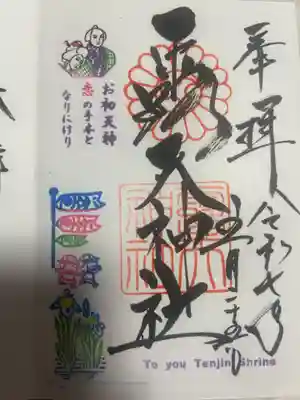 奉拝
令和七年
露天神社
お初天神
恋の手本と
なりにけり
To you Tenjin Shrine